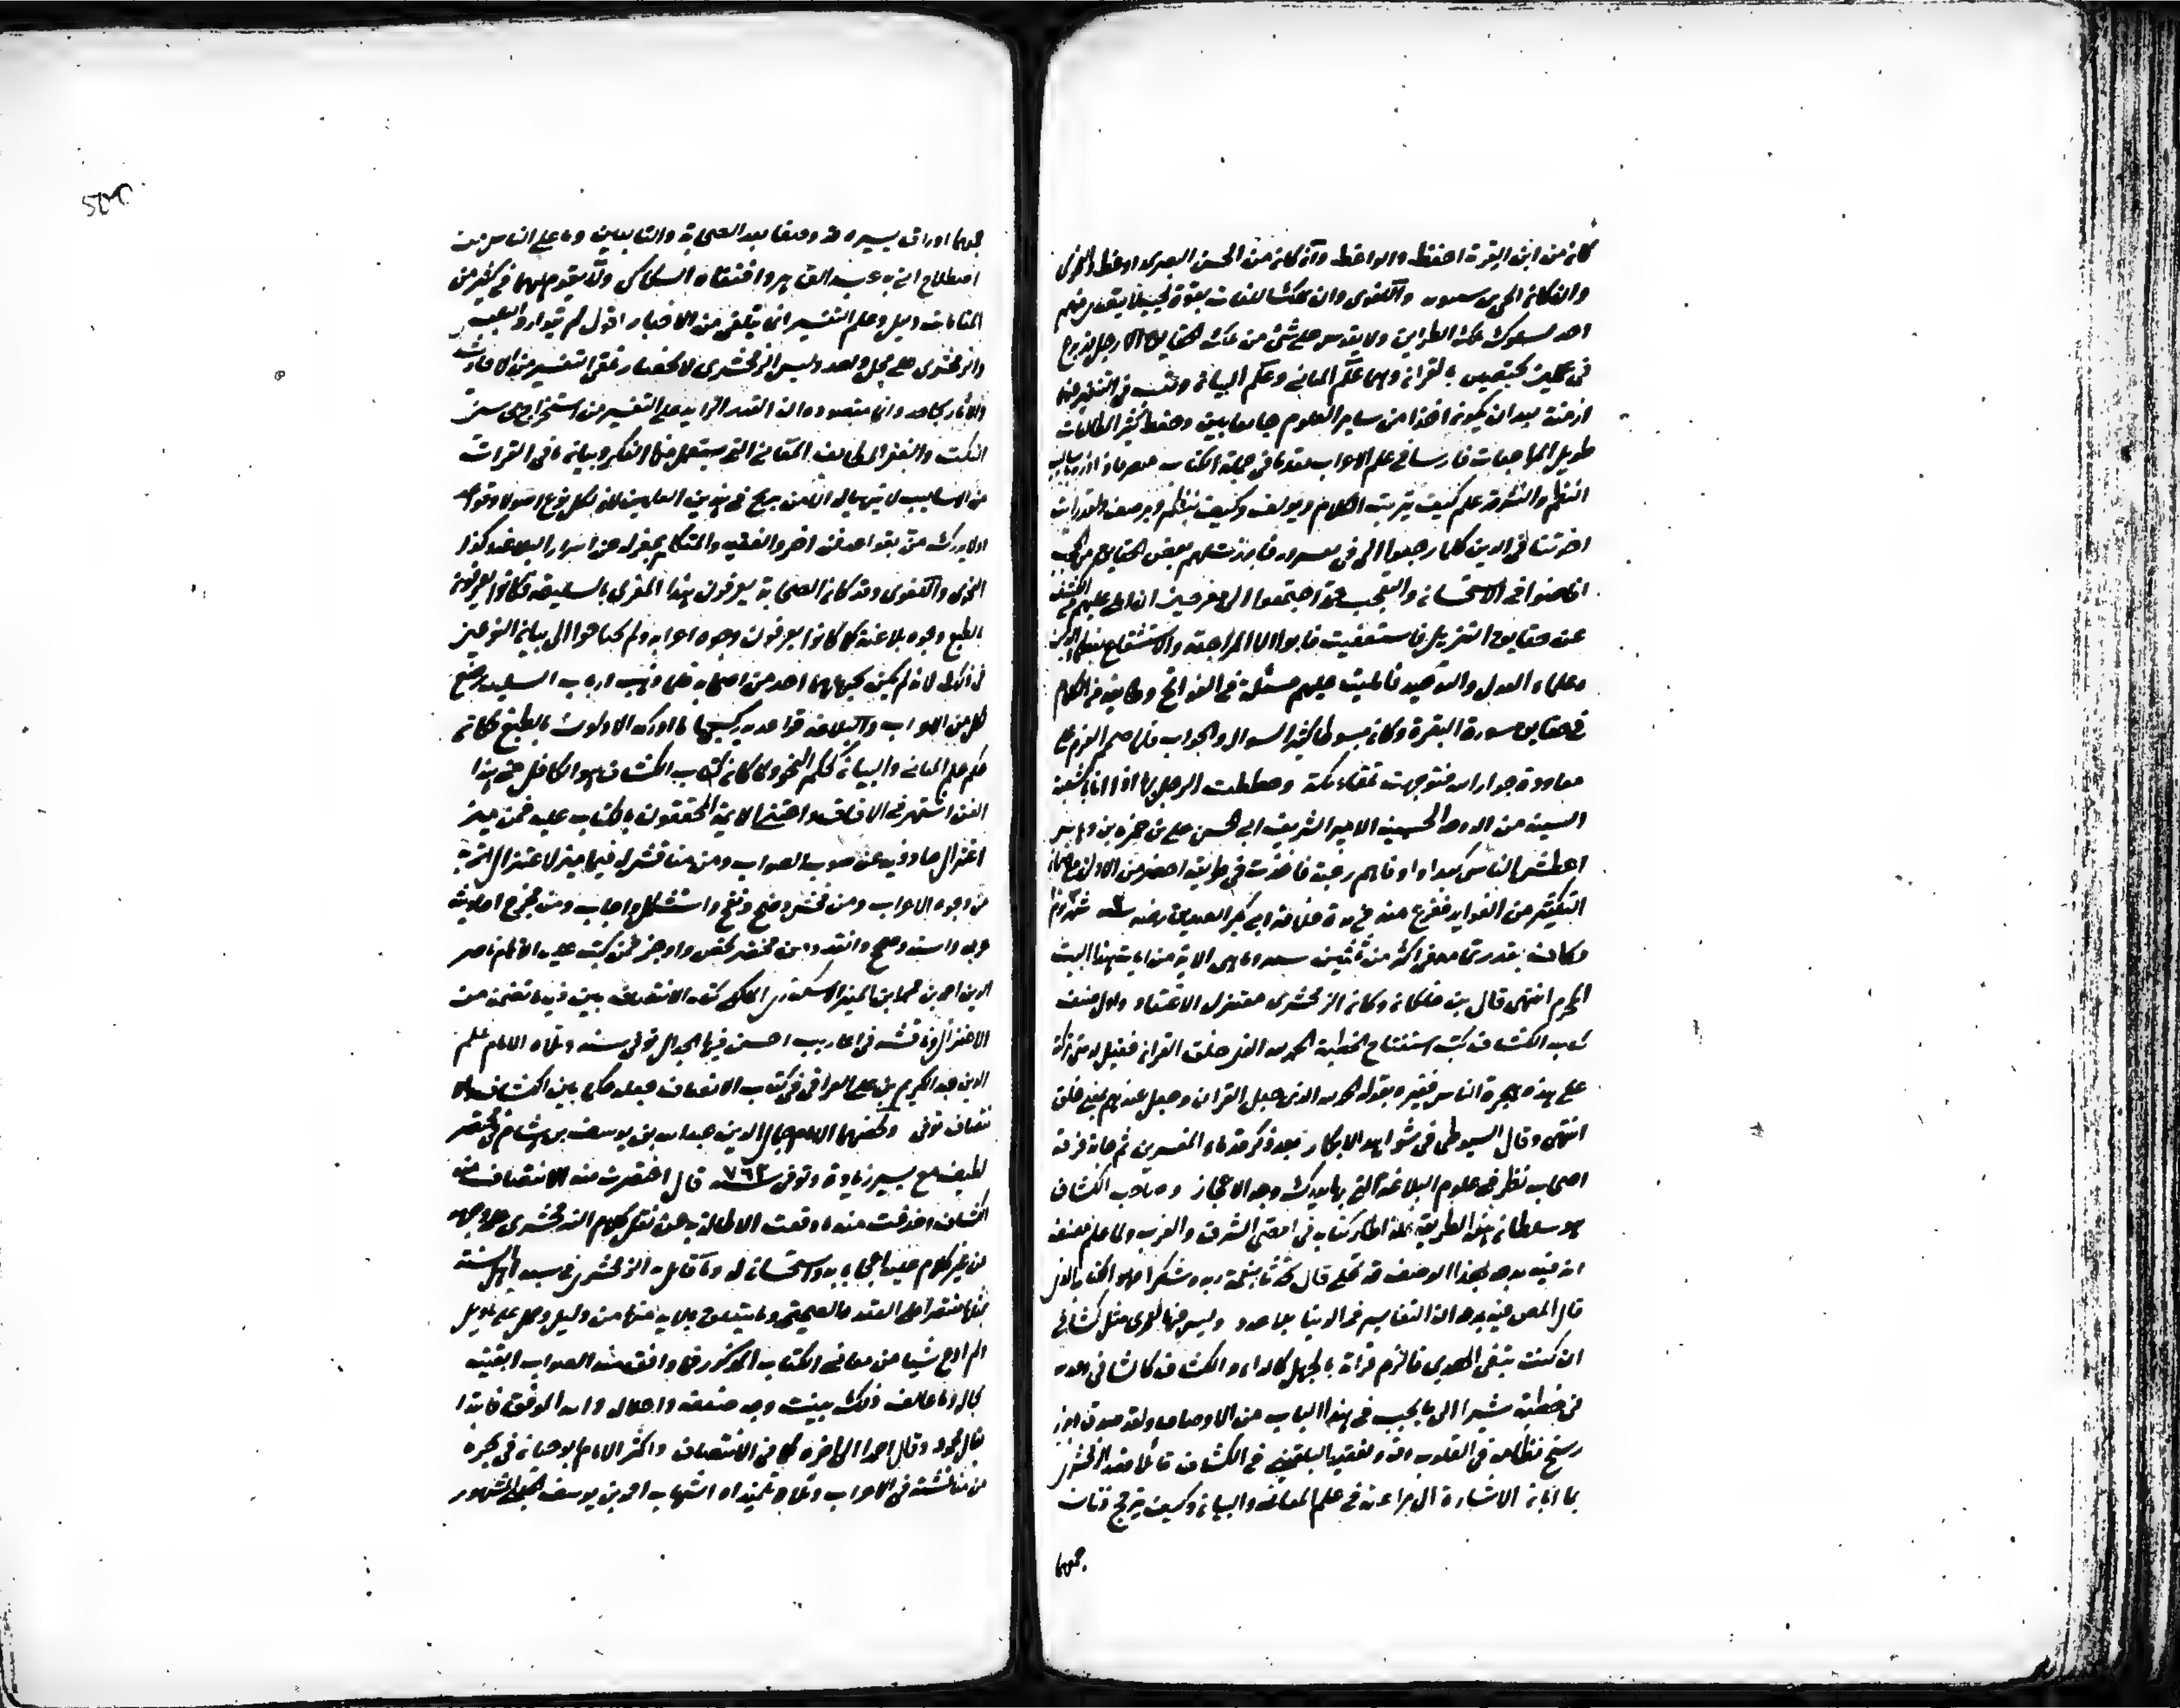 كان من ابن القرية احفظ والواعظ وان كان من الحسن البصرى اوعظ والنحوى
وان كان انحى من سيبويه واللغوى وان علك اللغات بقوة لحييه لا يتصدى منهم
احد لسلوك تلك الطرائق ولا يغوص على شئ من تلك الحقايق الا رجل قد برع
فى علمين مختصين بالقران وهما علم المعانى وعلم البيان وتعب فى التنقير عنهما
ازمنة بعد ان يكون اخذا من ساير العلوم جامعا بين وحفظ كثير المطالعات
طويل المراجعات فارسا فى علم الاعراب مقدما فى حملة الكتاب متصرفا ذا دربة باساليب
النظم والنثر قد علم كيف يرتب الكلام ويؤلف وكيف ينظم ويرصف ولقد رايت
اخوتنا فى الدين كلما رجعوا الى فى تفسير اية فابرزت لهم بعض الحقايق من الحجب
افاضوا فى الاستحسان والتعجب حتى اجتمعوا الى مقترحين ان املى عليهم الكشف
عن حقايق التنزيل فاستعفيت فابوا الا المراجعة والاستشفاع بعظماء الدين
وعلماء العدل والتوحيد فامليت عليهم مسئلة فى الفواتح وطايفة من الكلام
فى حقايق سورة البقرة وكان مبسوطا كثير السوال والجواب فلما صمم العزم على
معاودة جوار الله فتوجهت تلقاء مكة وحططت الرحل بها اذا انا بالشعبة
السنية من الدوحة الحسنية الامير الشريف ابى الحسن على بن حمزة بن وهاس
اعطش الناس كبدا واوفاهم رغبة فاخذت فى طريقة اخصر من الاولى مع ضمان
التكثير من الفوايد ففرغ منه فى مدة خلافة ابى بكر الصديق رضى الله عنه
وكان يقدر تمامه فى اكثر من ثلثين سنة وما هى الا اية من ايات هذا البيت
المحرم انتهى قال ابن خلكان وكان الزمخشرى معتزلى الاعتقاد واول ما صنف
كتاب الكشاف كتب استفتاح الخطبة الحمد لله الذى خلق القران فقيل له متى تركته
على هذه هجره الناس فغيره بقوله الحمد لله الذى جعل القران وجعل عندهم بمعنى خلق
انتهى وقال السيوطى فى شواهد الابكار بعد ذكر قدماء المفسرين ثم جاءت فرقة
اصحاب نظر فى علوم البلاغة التى بها يدرك وجه الاعجاز وصاحب الكشاف
هو سلطان هذه الطريقة فلذا طار كتابه فى اقصى الشرق والغرب ولما علم مصنفه
انه فيه بهذا الوصف قد تحلى قال تحدثا بنعمة ربه وشكرا
قال المص فيه ان التفاسير فى الدنيا بلا عدد وليس فيها لعمرى مثل كشافى
ان كنت تبغى الهدى فالزم قراءته فالجهل كالداء والكشاف كالشافى
فى خطبته مشيرا الى ما يجب فى هذا الباب من الاوصاف ولقد صدق وبر
رسخ نظامه فى القلوب وقر وتعقبه البلقينى فى الكشاف قائلا قصد الزمخشرى
بما ابداه الاشارة الى براعته فى علم المعانى والبيان وكيف يترجح فنان
جمعهما
جمعهما اوراق يسيرة قد وضعا بعد الصحابة والتابعين وما على الناس من
اصطلاح اتى به عبد القاهر واقتفاه السكاكى ولا يقوم لهما فى كثير من
المقامات دليل وعلم التفسير انما يتلقى من الاخبار اقول لم يتوارد البلقينى
والزمخشرى على محل واحد وليس الزمخشرى لانحصار تلقى التفسير من الاحاديث
والاثار بجاحد وانما مقصوده ان القدر الزايد على التفسير من استخراج محاسن
النكت والفقر ولطايف المعانى التى يستعمل فيها الفكر وبيان ما فى القران
من الاساليب لا يتهيا الا لمن برع فى هذين العلمين لان لكل نوع اصولا وقواعد
ولا يدرك فن بقواعد فن اخر والفقيه والمتكلم بمعزل عن اسرار البلاغة وكذا
النحوى واللغوى وقد كان الصحابة يعرفون هذا المغزى بالسليقة فكانوا يعرفون
بالطبع وجوه بلاغته كما كانوا يعرفون وجوه اعرابه ولم يحتاجوا الى بيان النوعين
فى ذلك لانه لم يكن يجهلهما احد من اصحابه فلما ذهب ارباب السليقة وضع
لكل من الاعراب والبلاغة قواعد يدرك بها ما ادركه الاولون بالطبع فكان
حكم علم المعانى والبيان كحكم النحو ولما كان كتاب الكشاف هو الكافل فى هذا
الفن اشتهر فى الافاق واعتنى الايمة المحققون بالكتابة عليه فمن مميز
اعتزال حاد فيه عن صوب الصواب ومن مناقش له فيما اتى به
من وجوه الاعراب ومن محش وضح ونقح واستشكل واجاب ومن مخرج احاديثه
عزا واسند وصحح وانتقد ومن مختصر لخص واوجز فممن كتب عليه الامام ناصر
الدين احمد بن محمد ابن المنير الاسكندرى المالكى كتابه الانتصاف بين فيه ما تضمنه من
الاعتزال وناقشه فى اعاريب احسن فيها الجدال توفى سنة وتلاه الامام علم
الدين عبد الكريم بن على العراقى فى كتاب الانصاف جعله حكما بين الكشاف والا
نتصاف توفى ولخصهما الامام جمال الدين عبد الله بن يوسف بن هشام فى مختصر
لطيف مع يسير زيادة وتوفى سنه ٧٦٢ قال اختصرت منه الانتصاف من
الكشاف وحذفت منه ما وقعت الاطالة به من نقل كلام الزمخشرى على وجهه
من غير كلام عليه اعجابا به واستحسانا له وما قابل به الزمخشرى فى سبه اهل السنة
بمثلها مقتصرا على العقد الصحيحة وما يتعلق بالاية منها من دليل وحمل على تاويل
ولم ادع شيا من معانى الكتاب المذكور فما وافق منه الصواب ابقيته
بحاله وما خالف ذلك بينت وجه ضعفه واخلاله والله الموفق فابتدا
بقال محمود وقال احمد الى اخره كما فى الانتصاف واكثر الامام ابو حيان فى بحره
من مناقشته فى الاعراب وتلاه تلميذاه الشهاب احمد بن يوسف الحلبى المشهور